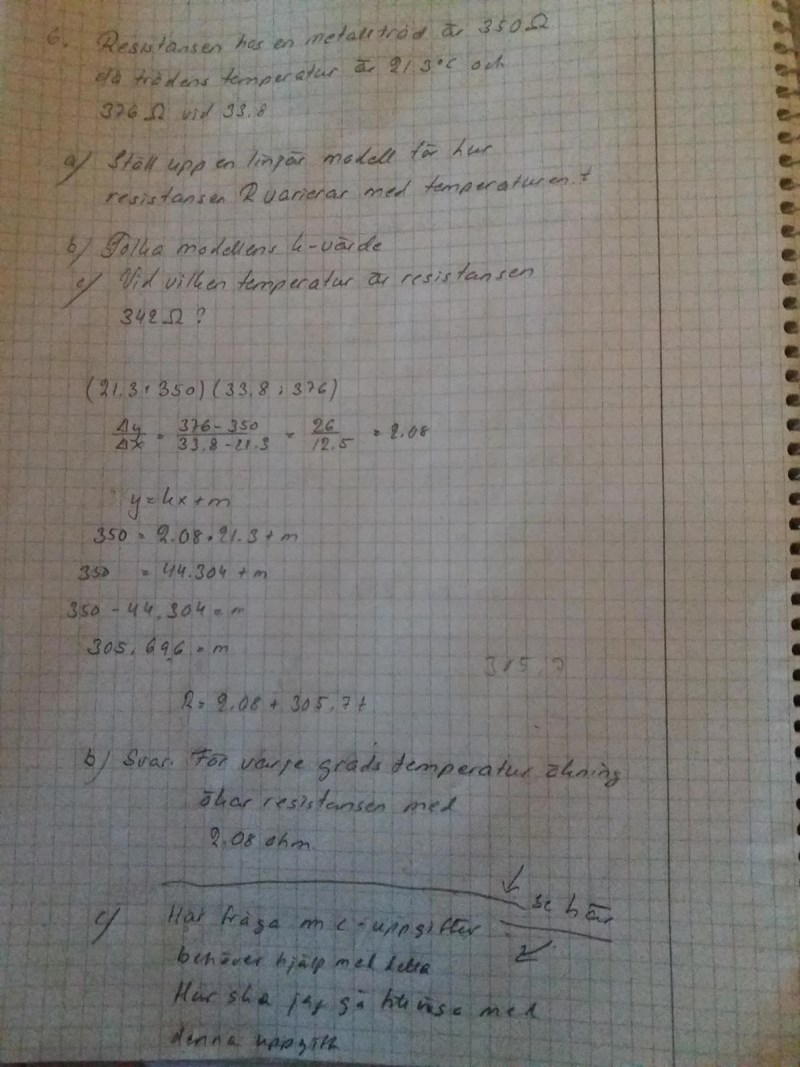 6. Resistansen hos en metalltråd är 350Ω
då trådens temperatur är 21,3°C och
376Ω vid 33,8
a) Ställ upp en linjär modell för hur
resistansen R varierar med temperaturen t
b) Tolka modellens k-värde
c) Vid vilken temperatur är resistansen
342Ω?
(21,3, 350) (33,8, 376)
Δy/Δx = 376-350/33.8-21.3 = 26/12.5 = 2.08
y=kx+m
350 = 2.08•21.3+m
350 = 44.304+m
350-44.304=m
305.696=m
315.7
R= 2.08 + 305.7t
b) Svar. För varje grads temperatur ökning
ökar resistansen med
2.08 ohm
se här
c) Har fråga c-uppgifter
behöver hjälp med
Hur ska jag gå tillväga med
denna uppgift